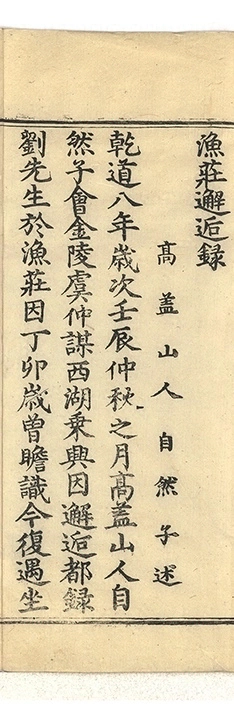 漁莊邂逅録
髙盖山人自然子述
乾道八年歲次壬辰仲秋之月髙盖山人自
然子會金陵虞仲謀西湖乗興因邂逅都録
劉先生於漁莊因丁卯歲曾瞻識今復遇坐